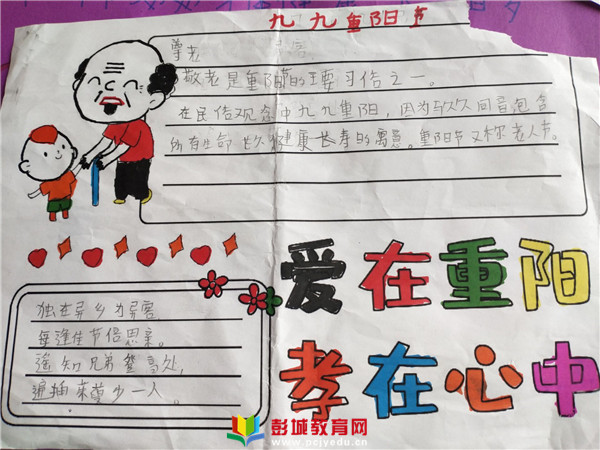 九九重阳节
尊老
敬老是重阳节的主要习俗之一。
在民俗观念中九九重阳,因为与久久同音包含
所有生命长久健康长寿的寓意。重阳节又称老人节。
爱在重阳
孝在心中
独在异乡为异客,
每逢佳节倍思亲。
遥知兄弟登高处,
遍插茱萸少一人。
彭城教育网
www.pcjyedu.cn